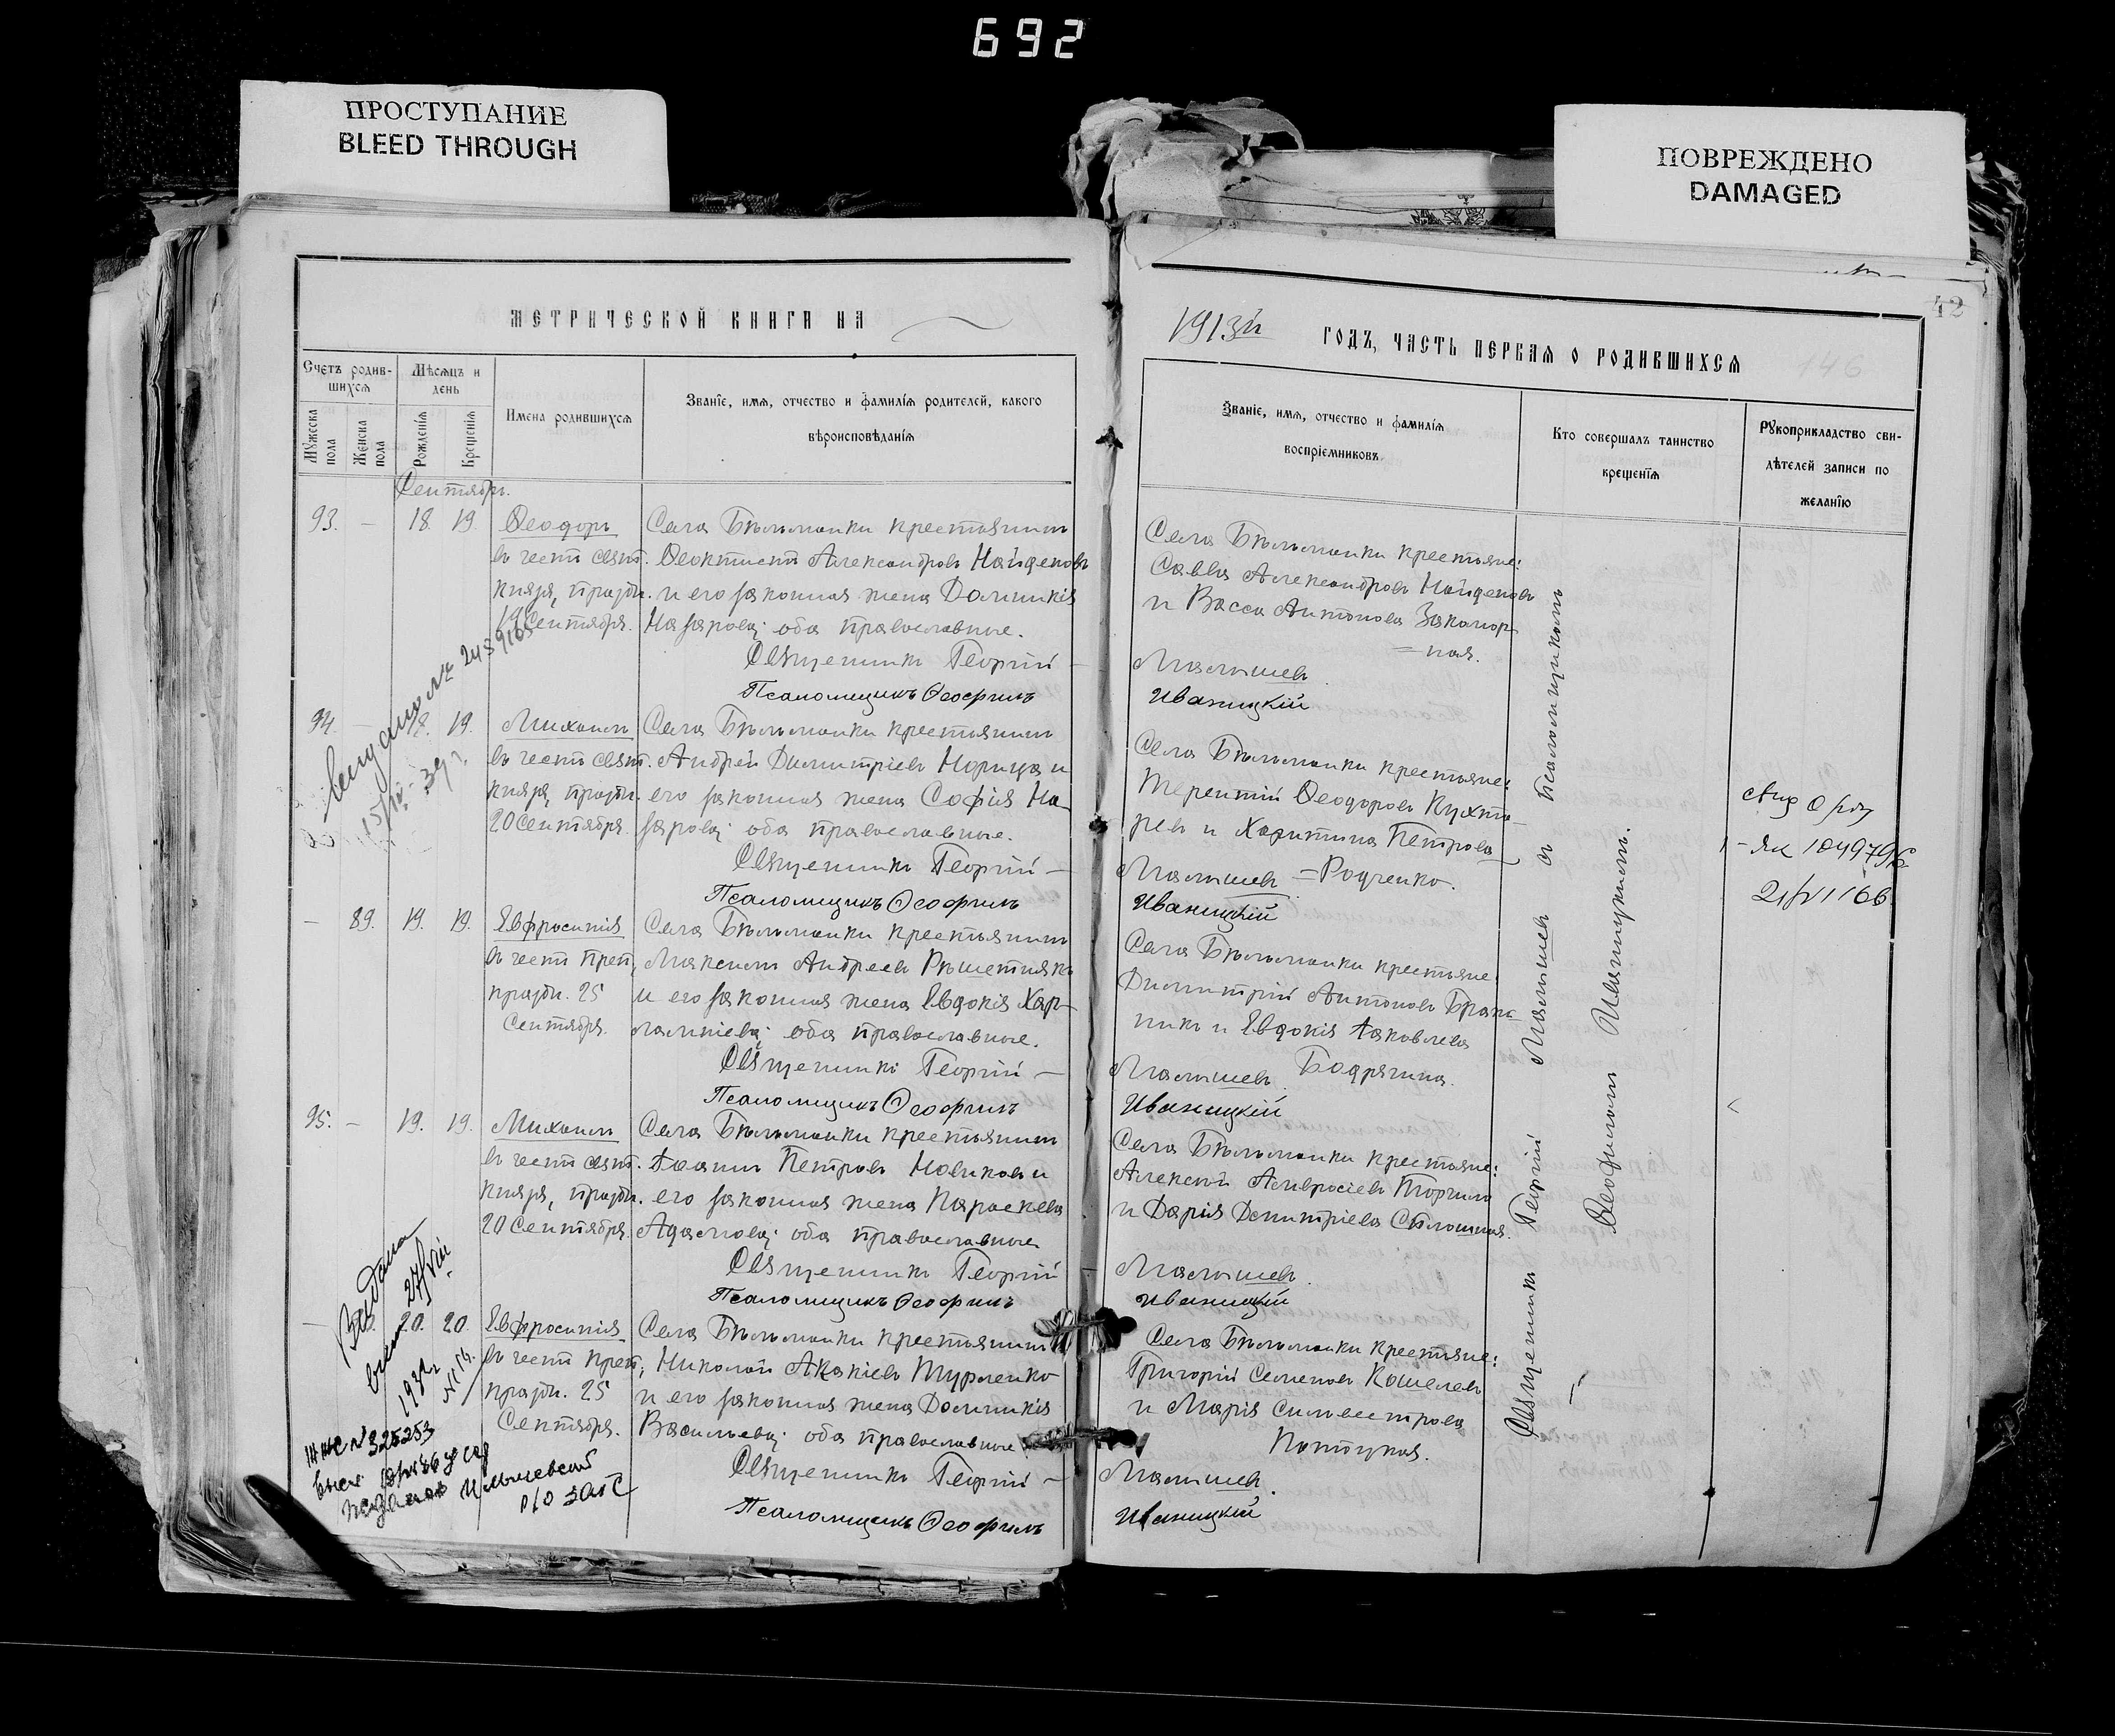 692
ПРОСТУПАНИЕ
BLEED THROUGH
ПОВРЕЖДЕНО
DAMAGED
42
МЕТРИЧЕСКОЙ КНИГИ НА
1913й ГОДЪ, ЧАСТЬ ПЕРВАЯ О РОДИВШИХСЯ
146
Счетъ родив-
шихся
Мѣсяцъ и
день
Мужеска
пола
Женска
пола
Рожденія
Крещенія
Имена родившихся
Званіе, имя, отчество и фамилія родителей, какого
вѣроисповѣданія
Званіе, имя, отчество и фамилія
воспріемниковъ
Кто совершалъ таинство
крещенія
Рукоприкладство сви-
дѣтелей записи по
желанію
Сентябрь.
93. – 18. 19. Ѳеодоръ
въ честь свят.
князя, праздн.
19 Сентября.
Села Бѣльманки крестьянинъ
Ѳеоктистъ Александровъ Найденовъ
и его законная жена Домникія
Назарова; оба православные.
Священникъ Георгій –
Псаломщикъ Ѳеофилъ
Села Бѣльманки крестьяне:
Савва Александровъ Найденовъ
и Васса Антонова Заколор-
=ная.
Малышев.
Иваницкій
94. – 18. 19. Михаилъ
въ честь свят.
князя, праздн.
20 Сентября.
Села Бѣльманки крестьянинъ
Андрей Димитріевъ Норица и
его законная жена Софія На-
зарова; оба православные.
Священникъ Георгій –
Псаломщикъ Ѳеофилъ
Села Бѣльманки крестьяне:
Терентій Ѳеодоровъ Кухта-
ревъ и Харитина Петрова
=Родченко.
Малышев
Иваницкій
1-ЯК 1049796
– 89. 19. 19. Евфросинія
въ честь преп.,
праздн. 25
Сентября.
Села Бѣльманки крестьянинъ
Максимъ Андреевъ Рѣшетнякъ
и его законная жена Евдокія Хар-
лампіева; оба православные.
Священникъ Георгій –
Псаломщикъ Ѳеофилъ
Села Бѣльманки крестьяне:
Димитрій Антоновъ Браж-
никъ и Евдокія Іаковлева
Бодрягина.
Малышев.
Иваницкій
95. – 19. 19. Михаилъ
въ честь свят.
князя, праздн.
20 Сентября.
Села Бѣльманки крестьянинъ
Іоаннъ Петровъ Новиковъ и
его законная жена Параскева
Адамова; оба православные
Священникъ Георгій
Псаломщикъ Ѳеофилъ
Села Бѣльманки крестьяне:
Алексей Амвросіевъ
и Дарія Димитріева Сплошная.
Малышев.
Иваницкій
– 20. 20. Евфросинія
въ честь преп.,
праздн. 25
Сентября.
Села Бѣльманки крестьянинъ
Николай Акакіевъ Турленко
и его законная жена Домникія
Васильева; оба православные
Священникъ Георгій –
Псаломщикъ Ѳеофилъ
Села Бѣльманки крестьяне:
Григорій Семеновъ Кошелевъ
и Марія Сильвестрова
Малышев.
Иваницкій
Священникъ Георгій Малышев и псаломщикомъ
Ѳеофилом Иваницкимъ.
Выдана
27/VIII
1932г
№ 325253